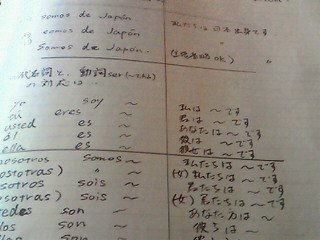 somos de Japón 私たちは日本出身です
somos de Japón 〃
) Somos de Japón. (主語省略OK) 〃
代名詞と、動詞ser(〜である)
の対応は…
yo soy 〜 私は〜です
tú eres 〜 君は〜です
usted es 〜 あなたは〜です
él es 〜 彼は〜です
ella es 〜 彼女は〜です
nosotros somos 〜 私たちは〜です
nosotras) 〃 〜 (女) 私たちは〜です
vosotros sois 〜 君たちは〜です
sois 〜 (女) 君たちは〜です
ustedes son 〜 あなた方は〜
ellos son 〜 彼らは〜
son 〜